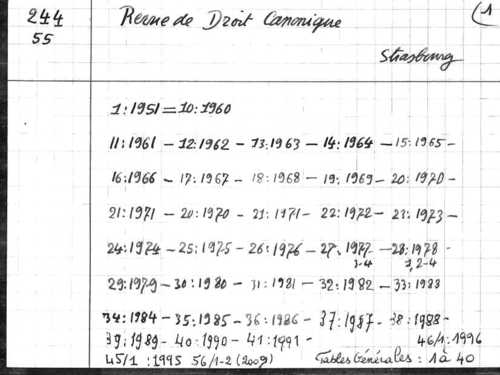 244 Revue de Droit Canonique (1
55
Strasbourg
1:1951=10:1960
11:1961 - 12:1962 - 13:1963 - 14:1964 - 15:1965 -
16:1966 - 17:1967 - 18:1968 - 19:1969 - 20:1970 -
21:1971 - 20:1970 - 21:1971 - 22:1972 - 23:1973 -
24:1974 - 25:1975 - 26:1976 - 27:1977 - 28:1978 -
3-4 1,2-4
29:1979 - 30:1980 - 31:1981 - 32:1982 - 33:1983
34:1984 - 35:1985 - 36:1986 - 37:1987 - 38:1988 -
39:1989 - 40:1990 - 41:1991 - 46/1:1996
45/1:1995 56/1-2 (2009) Tables Générales: 1 à 40